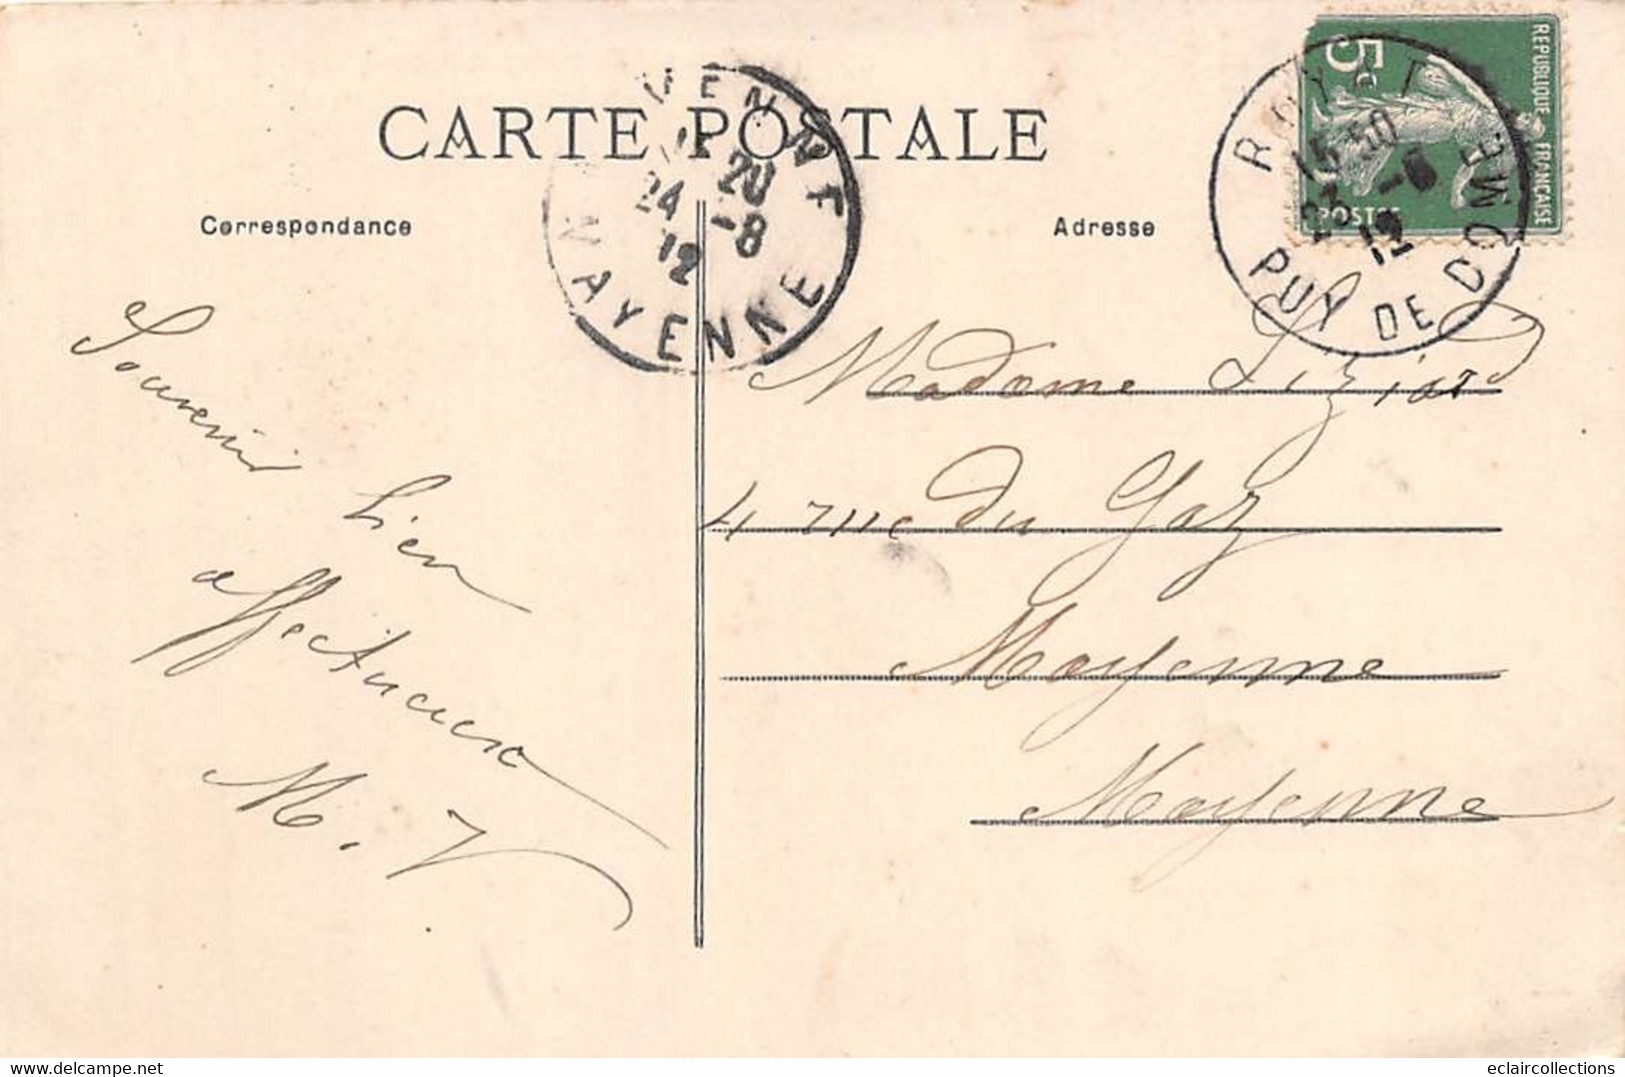 CARTE POSTALE
Correspondance
Adresse
REPUBLIQUE FRANÇAISE
5c
POSTES
ROYAT
15 50
23 -8
12
PUY DE DOME
20
24 -8
12
MAYENNE
Souvenir
bien
affectueux
M. V
Madame
4 rue du Gaz
Mayenne
Mayenne
eclaircollections@delcampe.net